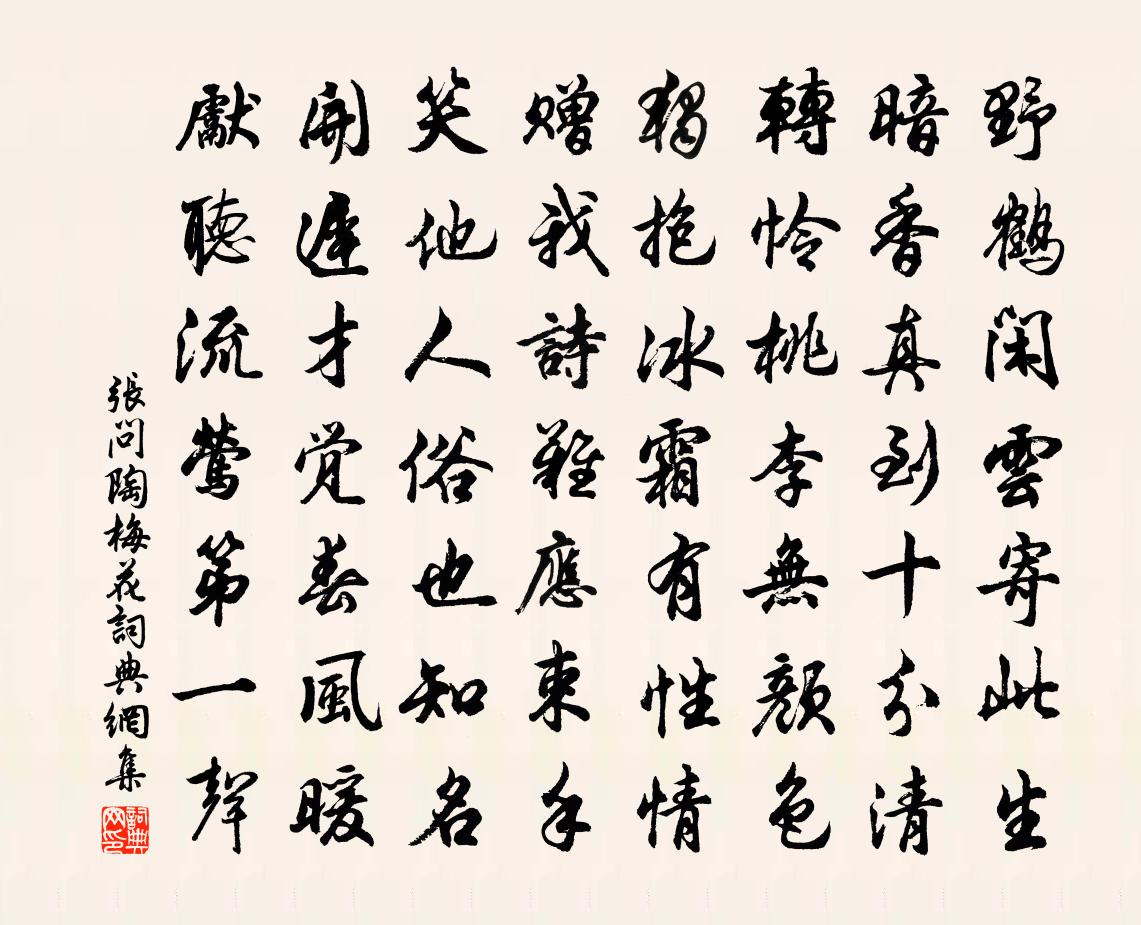 野鶴閑雲寄此生
暗香真到十分清
轉憐桃李無顏色
獨抱冰霜有性情
贈我詩難應束手
笑他人俗也知名
開遲才覺春風暖
先聽流鶯第一聲
張問陶梅花詞典網集
詞典網印